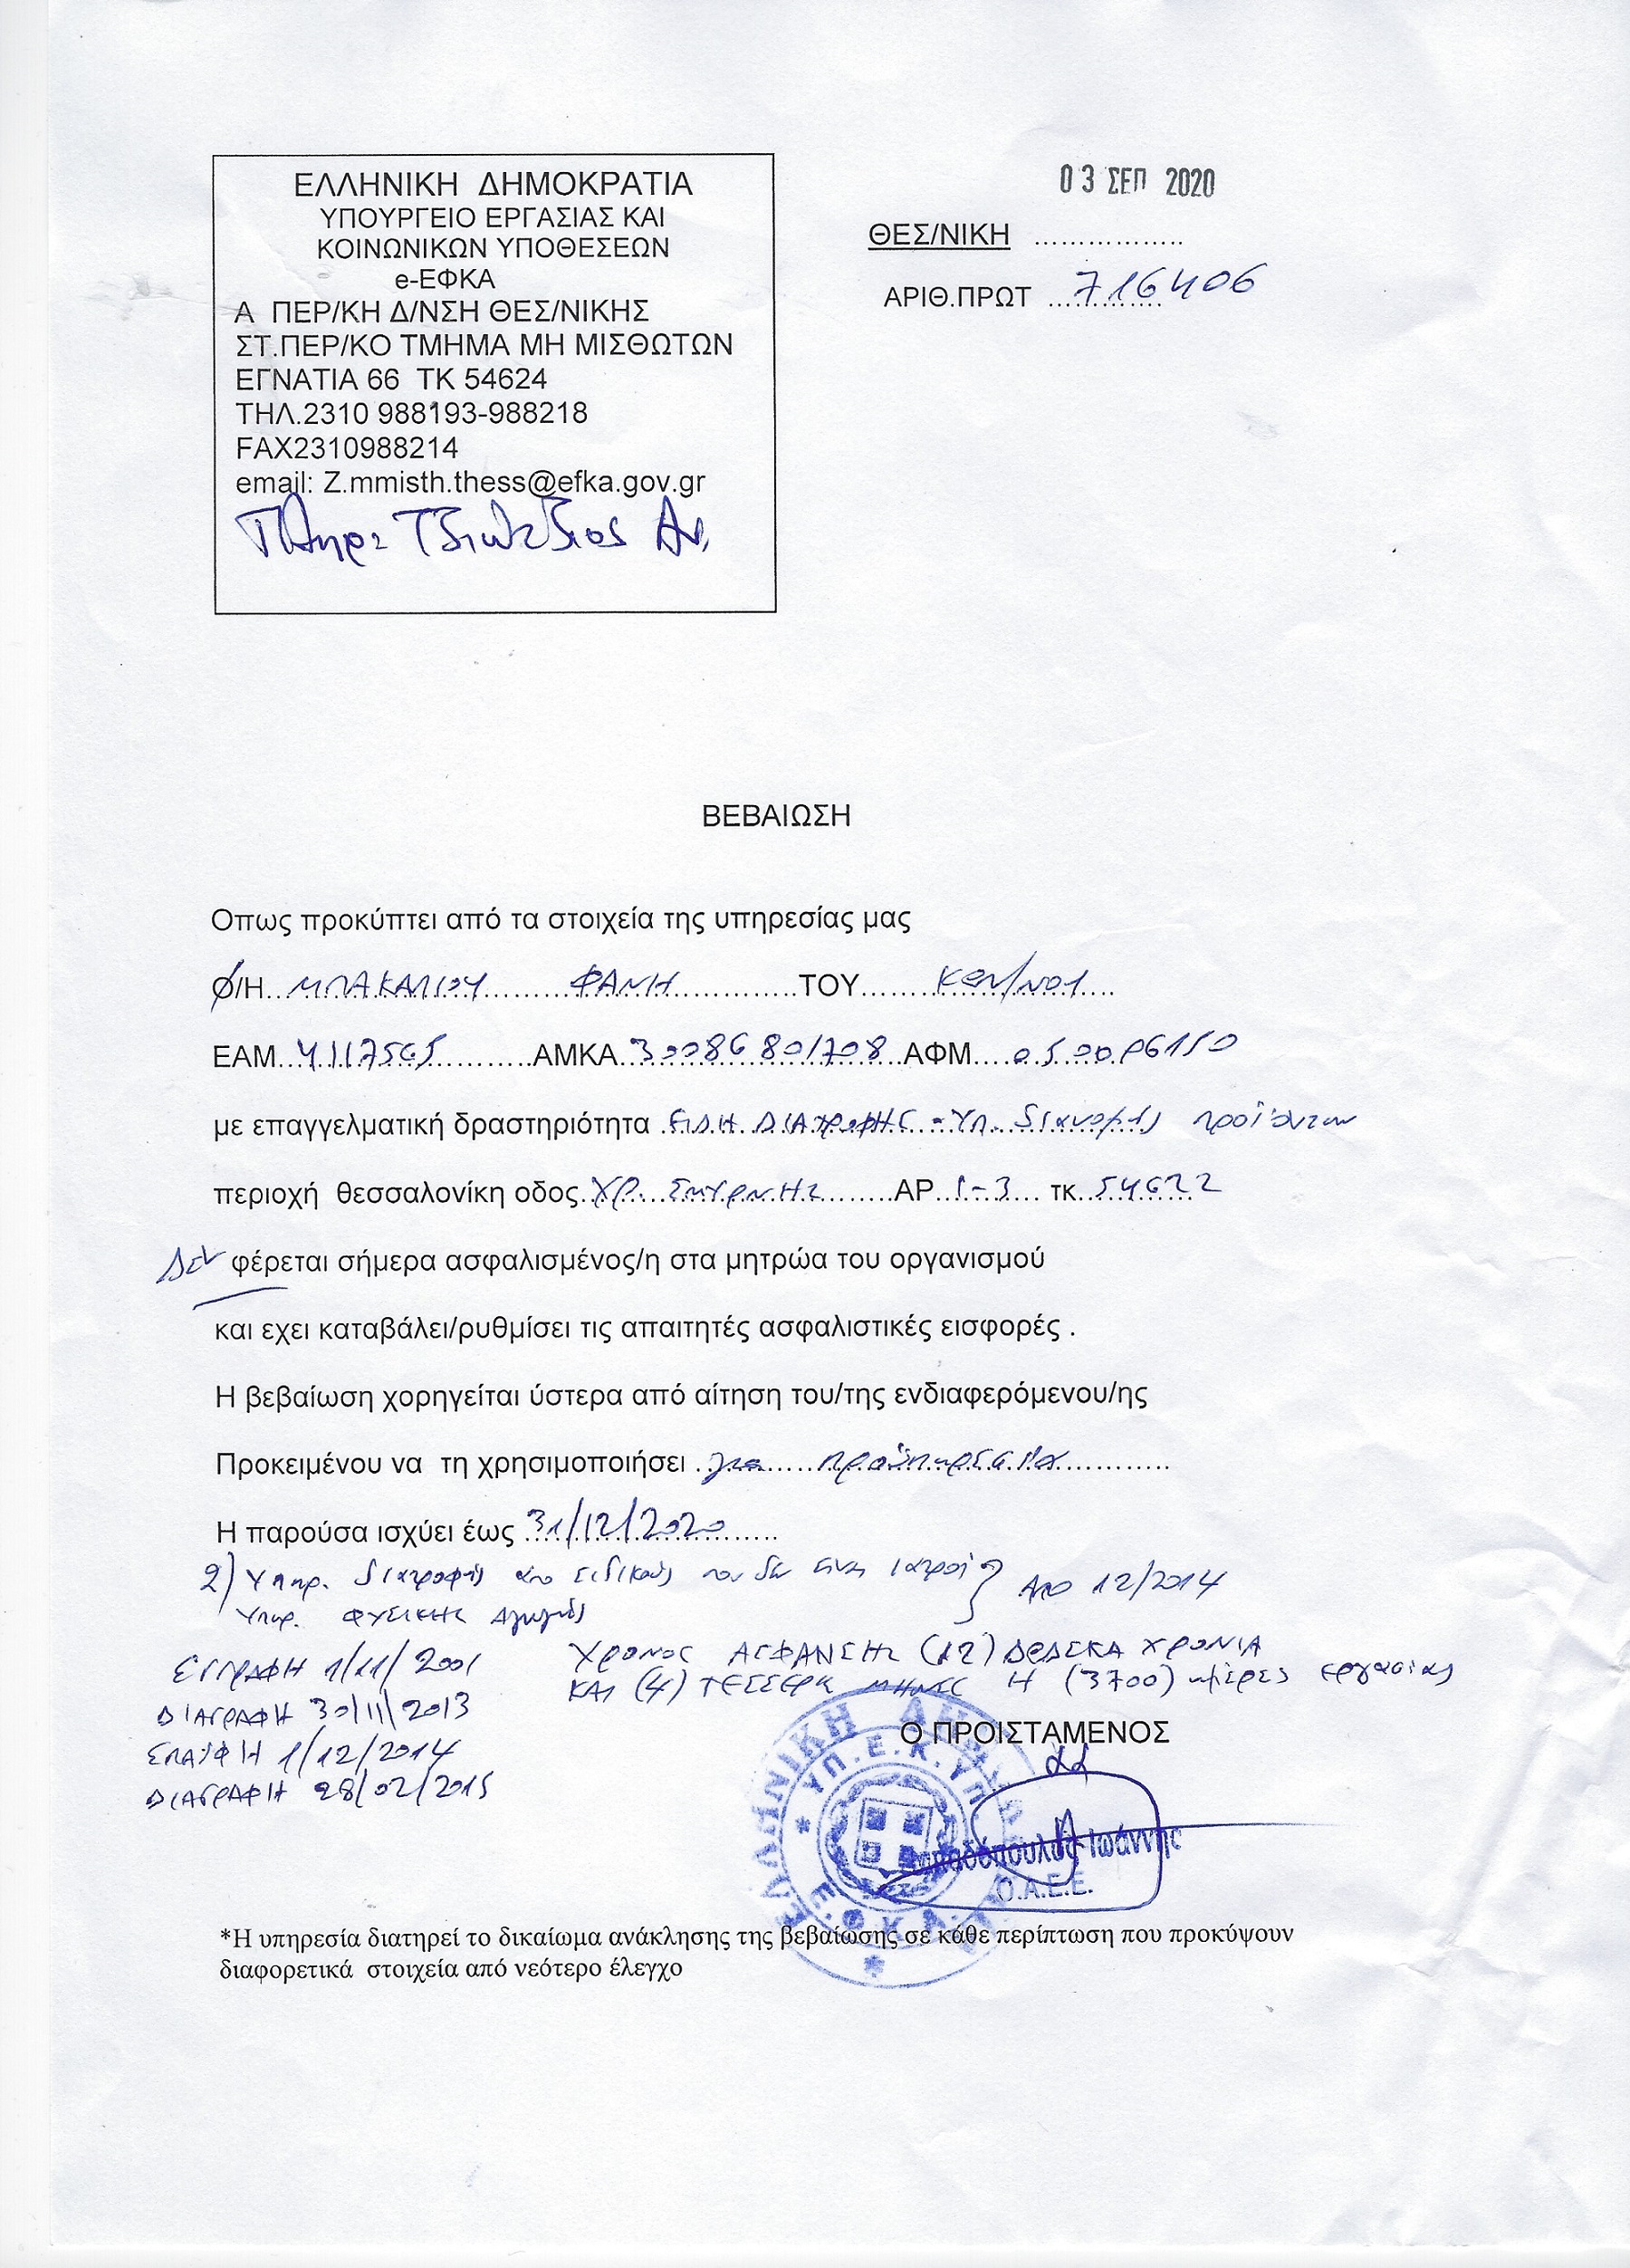 ΕΛΛΗΝΙΚΗ ΔΗΜΟΚΡΑΤΙΑ
ΥΠΟΥΡΓΕΙΟ ΕΡΓΑΣΙΑΣ ΚΑΙ
ΚΟΙΝΩΝΙΚΩΝ ΥΠΟΘΕΣΕΩΝ
e-ΕΦΚΑ
Α ΠΕΡ/ΚΗ Δ/ΝΣΗ ΘΕΣ/ΝΙΚΗΣ
ΣΤ.ΠΕΡ/ΚΟ ΤΜΗΜΑ ΜΗ ΜΙΣΘΩΤΩΝ
ΕΓΝΑΤΙΑ 66 ΤΚ 54624
ΤΗΛ.2310 988193-988218
FAX2310988214
email: Z.mmisth.thess@efka.gov.gr
Πληρ:
03 ΣΕΠ 2020
ΘΕΣ/ΝΙΚΗ ..................
ΑΡΙΘ.ΠΡΩΤ 716406
ΒΕΒΑΙΩΣΗ
Οπως προκύπτει από τα στοιχεία της υπηρεσίας μας
Ο/Η ΜΠΑΚΑΛΙΟΥ ΦΑΝΗ ΤΟΥ ΚΩΝ/ΝΟΥ
ΕΑΜ 4117565 ΑΜΚΑ 30086801708 ΑΦΜ 050006150
με επαγγελματική δραστηριότητα ΕΙΔΗ ΔΙΑΤΡΟΦΗΣ - Υπ. διανομής προϊόντων
περιοχή θεσσαλονίκη οδος ΧΡ. ΣΜΥΡΝΗΣ ΑΡ 1-3 τκ 54622
Δεν φέρεται σήμερα ασφαλισμένος/η στα μητρώα του οργανισμού
και εχει καταβάλει/ρυθμίσει τις απαιτητές ασφαλιστικές εισφορές .
Η βεβαίωση χορηγείται ύστερα από αίτηση του/της ενδιαφερόμενου/ης
Προκειμένου να τη χρησιμοποιήσει για προϋπηρεσία
Η παρούσα ισχύει έως 31/12/2020
2) Υπηρ. διατροφής από ειδικούς που δεν είναι Ιατροί } Από 12/2014
Υπηρ. ΦΥΣΙΚΗΣ Αγωγής
ΕΓΓΡΑΦΗ 1/11/2001
ΔΙΑΓΡΑΦΗ 30/11/2013
ΕΠΑ/ΦΗ 1/12/2014
ΔΙΑΓΡΑΦΗ 28/02/2015
ΧΡΟΝΟΣ ΑΣΦΑΛΙΣΗΣ (12) ΔΩΔΕΚΑ ΧΡΟΝΙΑ
ΚΑΙ (4) ΤΕΣΣΕΡΑ ΜΗΝΕΣ Η (3700) ημέρες εργασίας
Ο ΠΡΟΙΣΤΑΜΕΝΟΣ
αα
Παπαδόπουλος Ιωάννης
Ο.Α.Ε.Ε.
ΕΛΛΗΝΙΚΗ
*Η υπηρεσία διατηρεί το δικαίωμα ανάκλησης της βεβαίωσης σε κάθε περίπτωση που προκύψουν
διαφορετικά στοιχεία από νεότερο έλεγχο